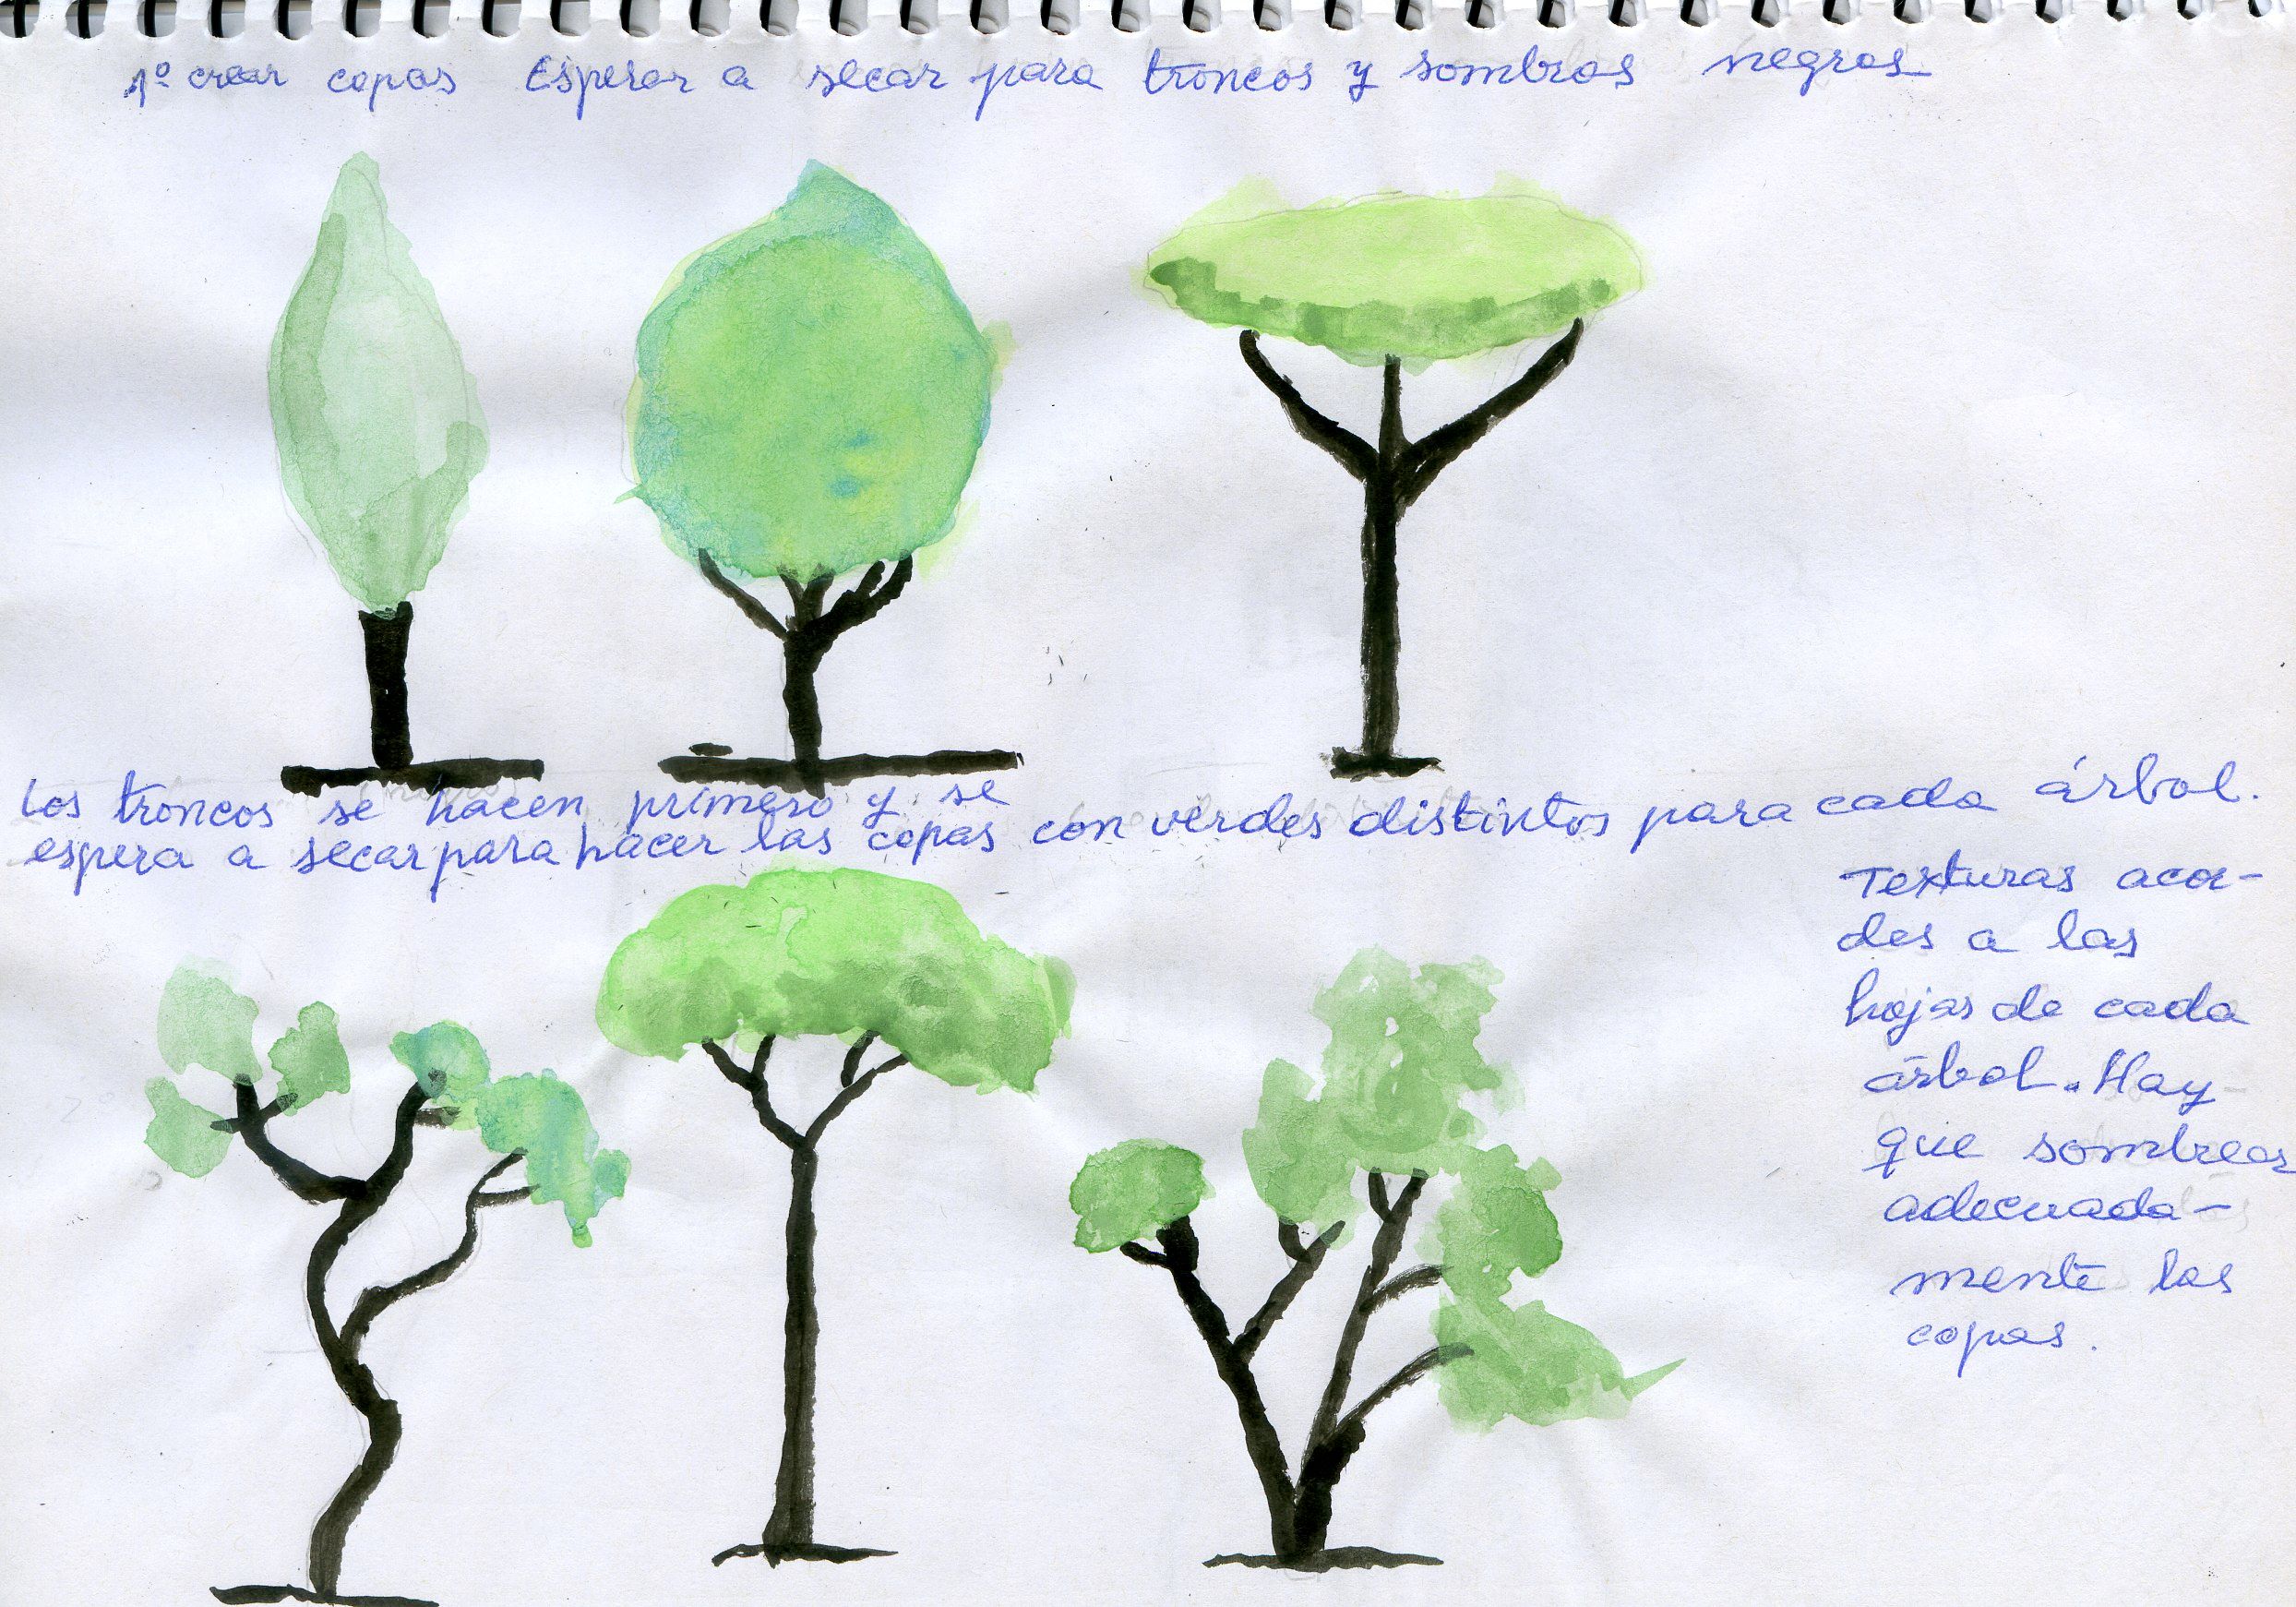 1º crear copas Esperar a secar para troncos y sombras negras
Los troncos se hacen primero y se
espera a secar para hacer las copas con verdes distintos para cada árbol.
Texturas acor-
des a las
hojas de cada
árbol. Hay
que sombrear
adecuada-
mente las
copas.